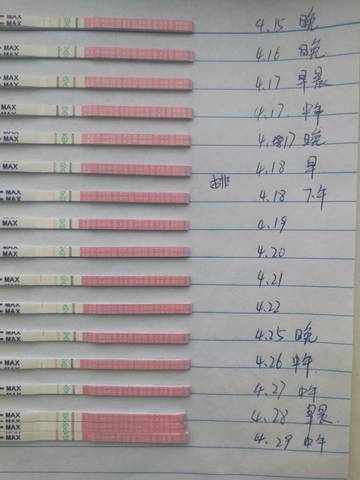 MAX 4.15 晚
MAX 4.16 晚
MAX 4.17 早晨
MAX 4.17. 中午
MAX 4.17 晚
MAX 4.18 早
排
MAX 4.18 下午
MAX 4.19
MAX 4.20
MAX 4.21
MAX 4.22
MAX 4.25 晚
MAX 4.26 中午
MAX 4.27 中午
MAX 4.28 早晨
MAX 4.29 中午